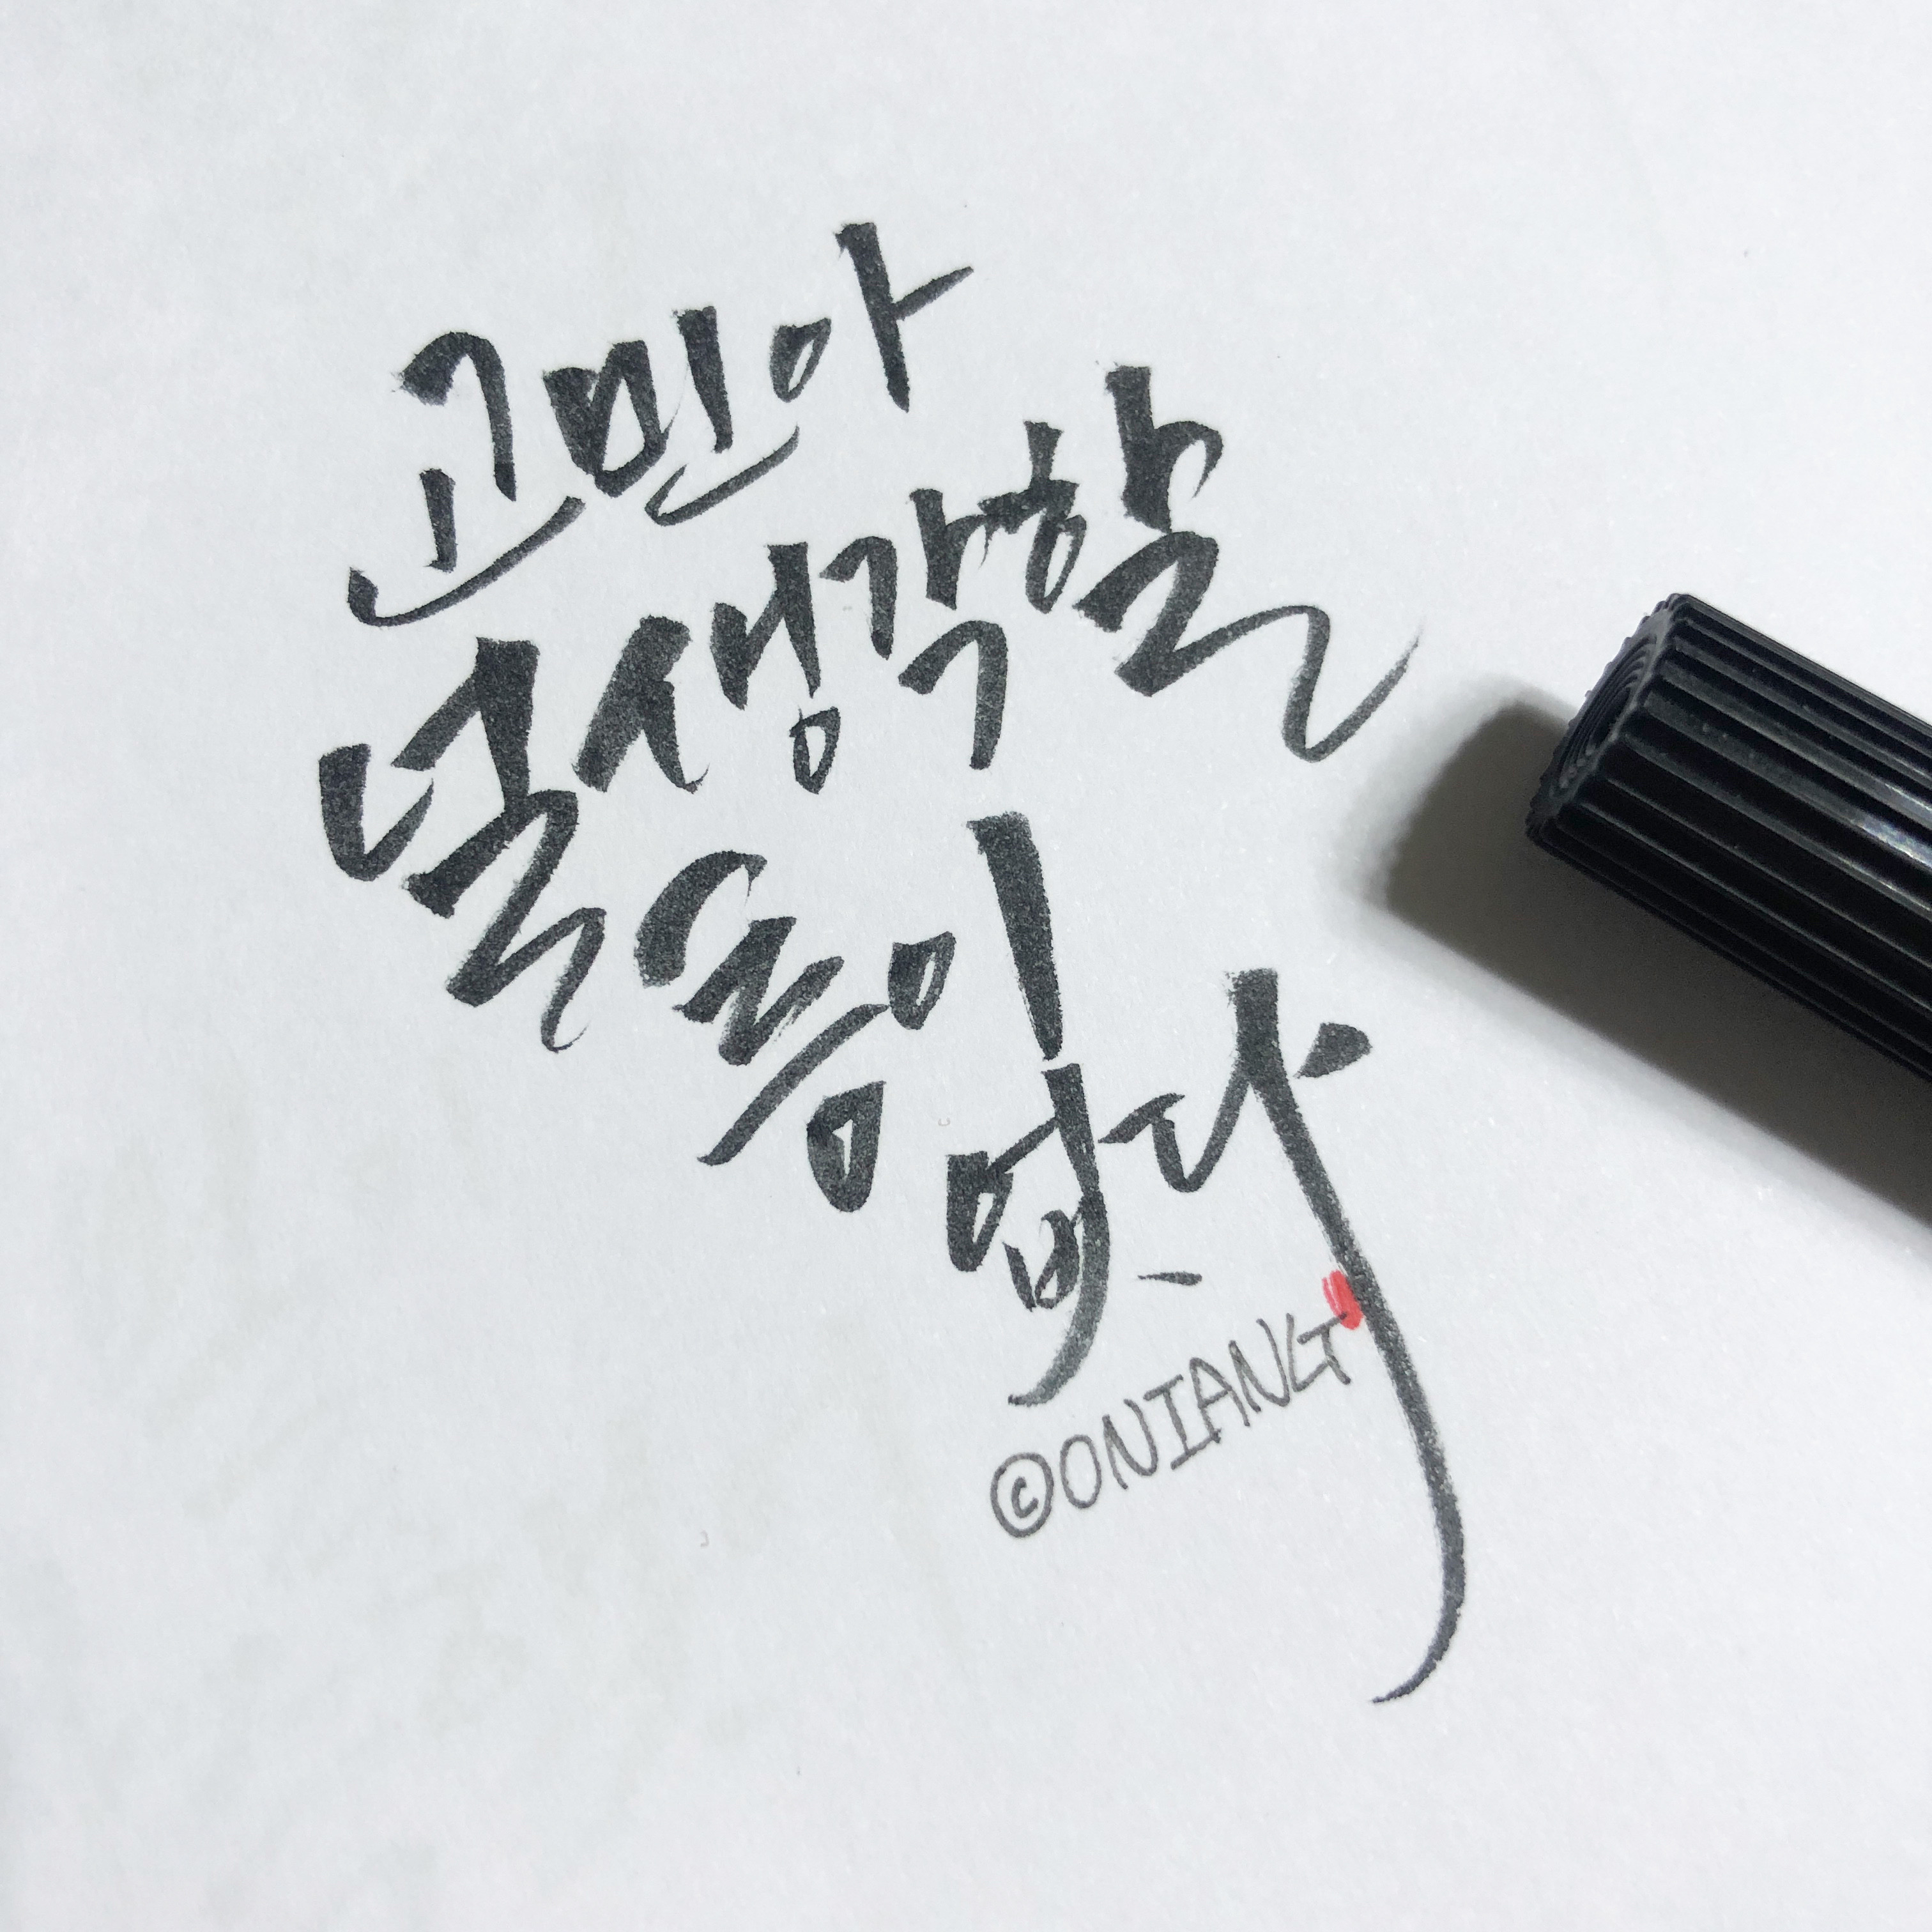 고민아
널 생각할
틈이
없다
©ONIANG